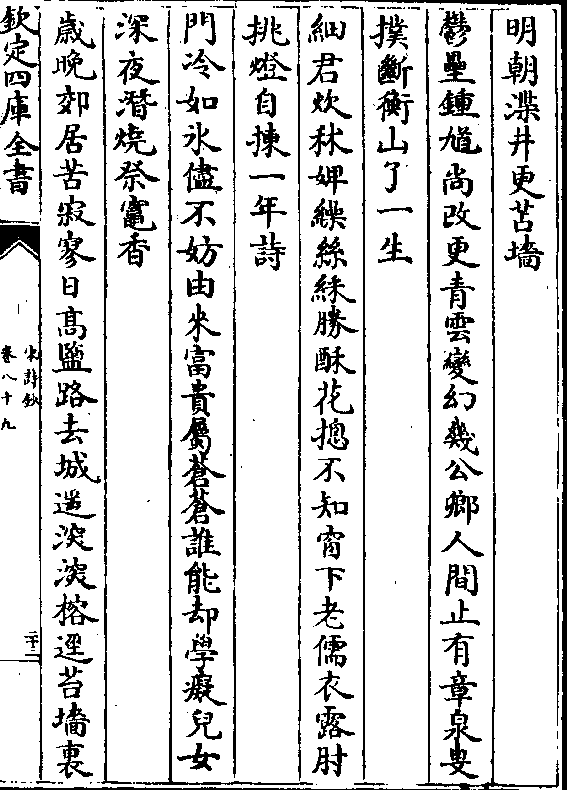 明朝渫井更苫墻
鬱壘鍾馗尚改更青雲變幻幾公卿人間止有章泉叟
撲斷衡山了一生
細君炊秫婢繰絲綵勝酥花摠不知窗下老儒衣露肘
挑燈自揀一年詩
門冷如氷儘不妨由来富貴屬蒼蒼誰能却學癡兒女
深夜潛燒祭竈香
歲晚郊居苦寂寥日髙鹽路去城遥淡淡榕逕苔墻裏
欽定四庫全書
宋詩鈔
卷八十九
二十二